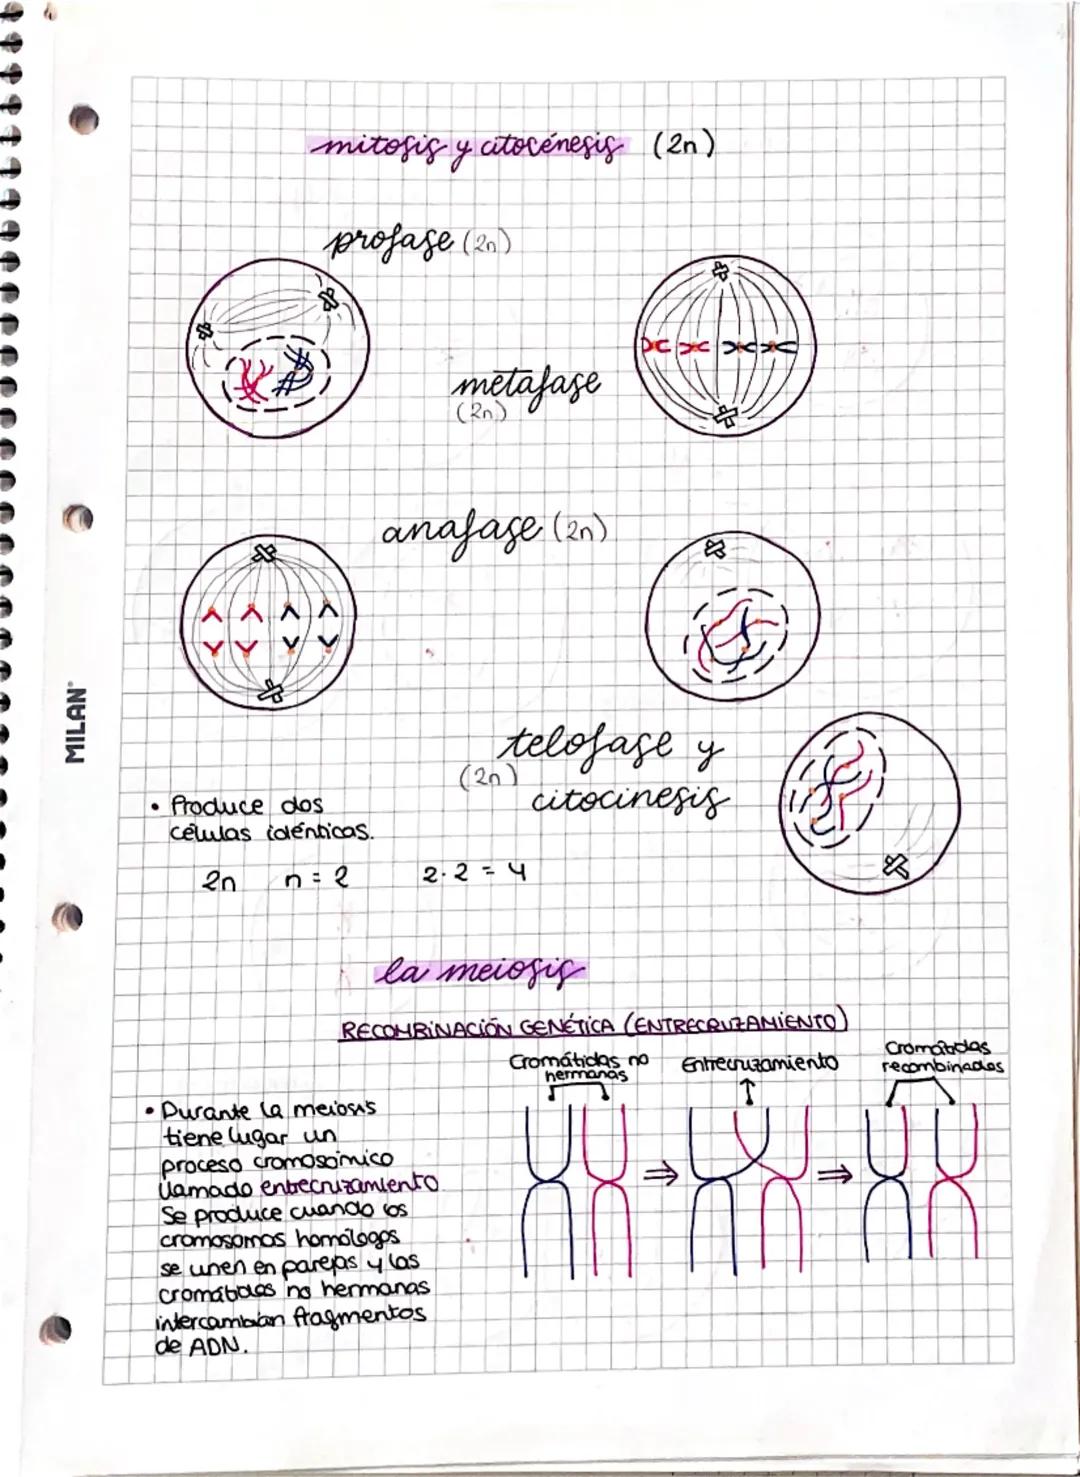 mitosis y citocénesis (2n)
profase (2n)
metafase
(2n)
anafase (2n)
telofase y
(2n)
citocinesis
• Produce dos
células idénticas.
2n n = 2 2·2 = 4
la meiosis
RECOMBINACIÓN GENÉTICA (ENTRECRUZAMIENTO)
Cromátidas no
hermanas
Entrecruzamiento
Cromátidas
recombinadas
• Durante la meiosis
tiene lugar un
proceso cromosómico
llamado entrecruzamiento
Se produce cuando los
cromosomas homólogos
se unen en parejas y las
cromátidas no hermanas
intercambian fragmentos
de ADN.
MILAN